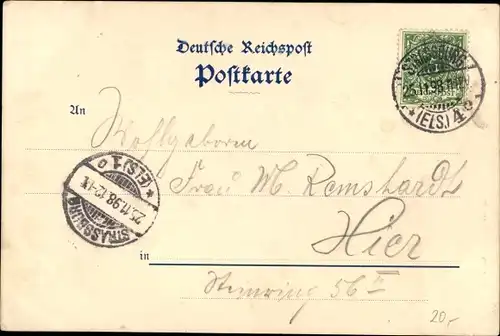 Deutsche Reichspost
Postkarte
STRASSBURG
25.11.98
(ELS.) 4 c
An
Wohlgeborn
Frau M. Remshardt
Hier
in
Sternring 5b II
STRASSBURG
25.11.98.12-1
(ELS.) 1
20,-